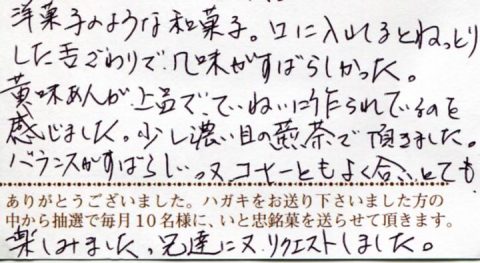 洋菓子のような和菓子。口に入れるとねっとり
した舌ざわりで、風味がすばらしかった。
黄味あんが上品で、ていねいに作られているのを
感じました。少し濃い目の煎茶で頂きました。
バランスがすばらしい。又コーヒーともよく合いとても
ありがとうございました。ハガキをお送り下さいました方の
中から抽選で毎月10名様に、いと忠銘菓を送らせて頂きます。
楽しみました。兄達に又リクエストしました。